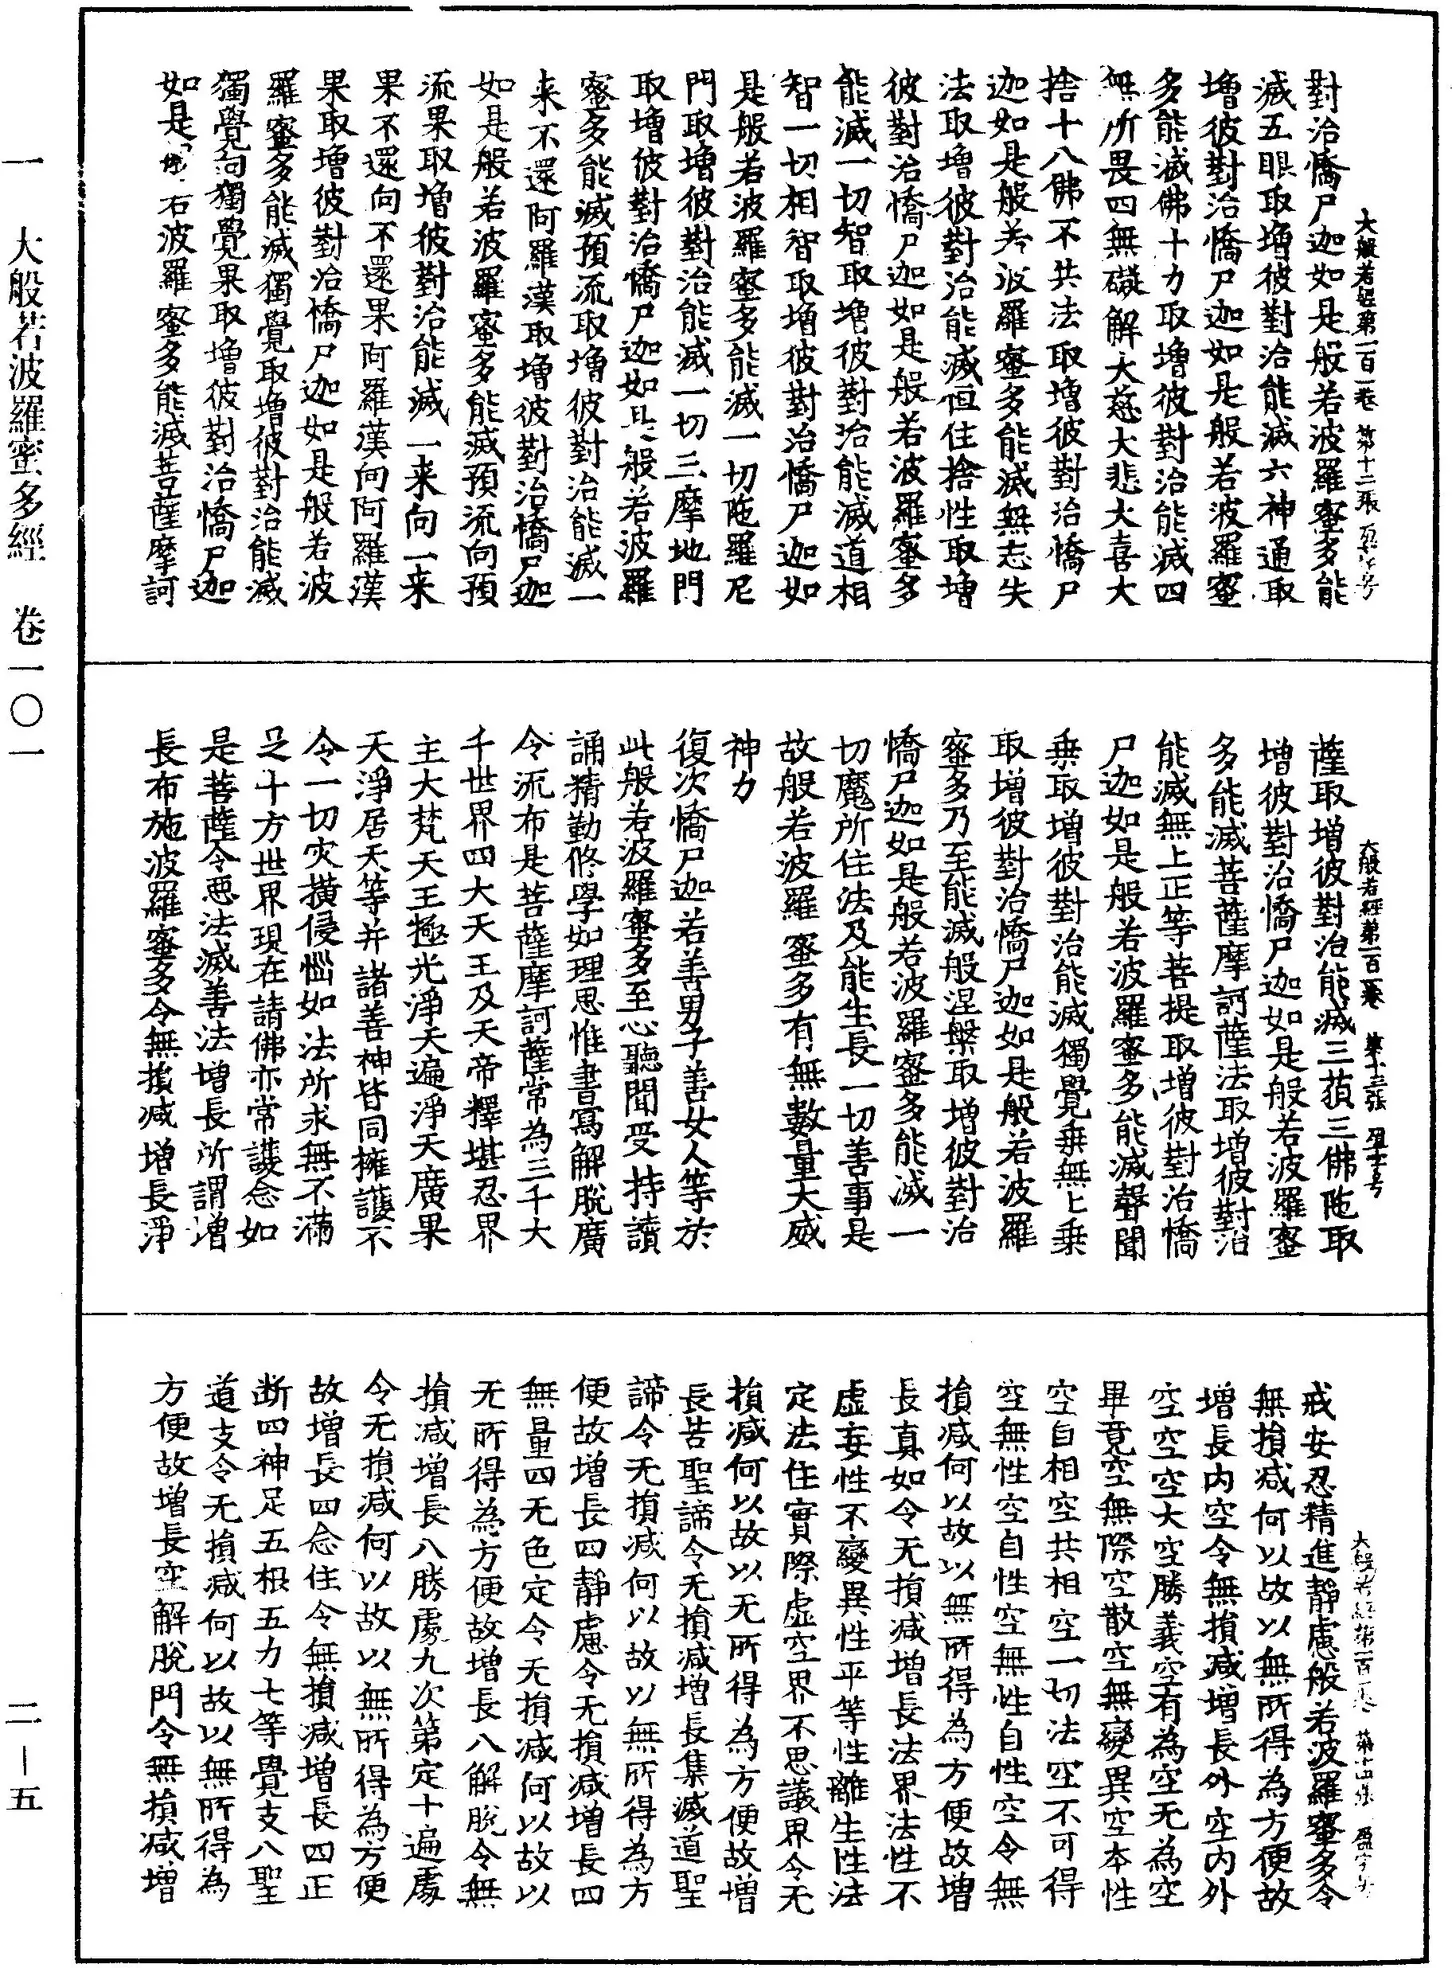 大般若經第一百一卷 第十二張 盈字號
對治憍尸迦如是般若波羅蜜多能
滅五眼取增彼對治能滅六神通取
增彼對治憍尸迦如是般若波羅蜜
多能滅佛十力取增彼對治能滅四
無所畏四無礙解大慈大悲大喜大
捨十八佛不共法取增彼對治憍尸
迦如是般若波羅蜜多能滅無忘失
法取增彼對治能滅恒住捨性取增
彼對治憍尸迦如是般若波羅蜜多
能滅一切智取增彼對治能滅道相
智一切相智取增彼對治憍尸迦如
是般若波羅蜜多能滅一切陁羅尼
門取增彼對治能滅一切三摩地門
取增彼對治憍尸迦如是般若波羅
蜜多能滅預流取增彼對治能滅一
来不還阿羅漢取增彼對治憍尸迦
如是般若波羅蜜多能滅預流向預
流果取增彼對治能滅一来向一来
果不還向不還果阿羅漢向阿羅漢
果取增彼對治憍尸迦如是般若波
羅蜜多能滅獨覺取增彼對治能滅
獨覺向獨覺果取增彼對治憍尸迦
如是般若波羅蜜多能滅菩薩摩訶
大般若經第一百一卷 第十三張 盈字号
薩取增彼對治能滅三藐三佛陁取
增彼對治憍尸迦如是般若波羅蜜
多能滅菩薩摩訶薩法取增彼對治
能滅無上正等菩提取增彼對治憍
尸迦如是般若波羅蜜多能滅聲聞
乗取增彼對治能滅獨覺乗無上乗
取增彼對治憍尸迦如是般若波羅
蜜多乃至能滅般涅槃取增彼對治
憍尸迦如是般若波羅蜜多能滅一
切魔所住法及能生長一切善事是
故般若波羅蜜多有無數量大威
神力
復次憍尸迦若善男子善女人等於
此般若波羅蜜多至心聽聞受持讀
誦精勤修學如理思惟書寫解脫廣
令流布是菩薩摩訶薩常為三千大
千世界四大天王及天帝釋堪忍界
主大梵天王極光淨天遍淨天廣果
天淨居天等并諸善神皆同擁護不
令一切灾横侵惱如法所求無不滿
足十方世界現在請佛亦常護念如
是菩薩令惡法滅善法增長所謂增
長布施波羅蜜多令無損減增長淨
大般若經第一百一卷 第十四張 盈字号
戒安忍精進靜慮般若波羅蜜多令
無損減何以故以無所得為方便故
增長内空令無損減增長外空内外
空空空大空勝義空有為空无為空
畢竟空無際空散空無變異空本性
空自相空共相空一切法空不可得
空無性空自性空無性自性空令無
損減何以故以無所得為方便故增
長真如令无損減增長法界法性不
虛妄性不變異性平等性離生性法
定法住實際虛空界不思議界令无
損減何以故以无所得為方便故增
長苦聖諦令无損減增長集滅道聖
諦令无損減何以故以無所得為方
便故增長四靜慮令无損減增長四
無量四无色定令无損減何以故以
无所得為方便故增長八解脫令無
損減增長八勝處九次第定十遍處
令无損減何以故以無所得為方便
故增長四念住令無損減增長四正
断四神足五根五力七等覺支八聖
道支令无損減何以故以無所得為
方便故增長空解脫門令無損減增
一 大般若波羅蜜多經 卷一〇一
二—五